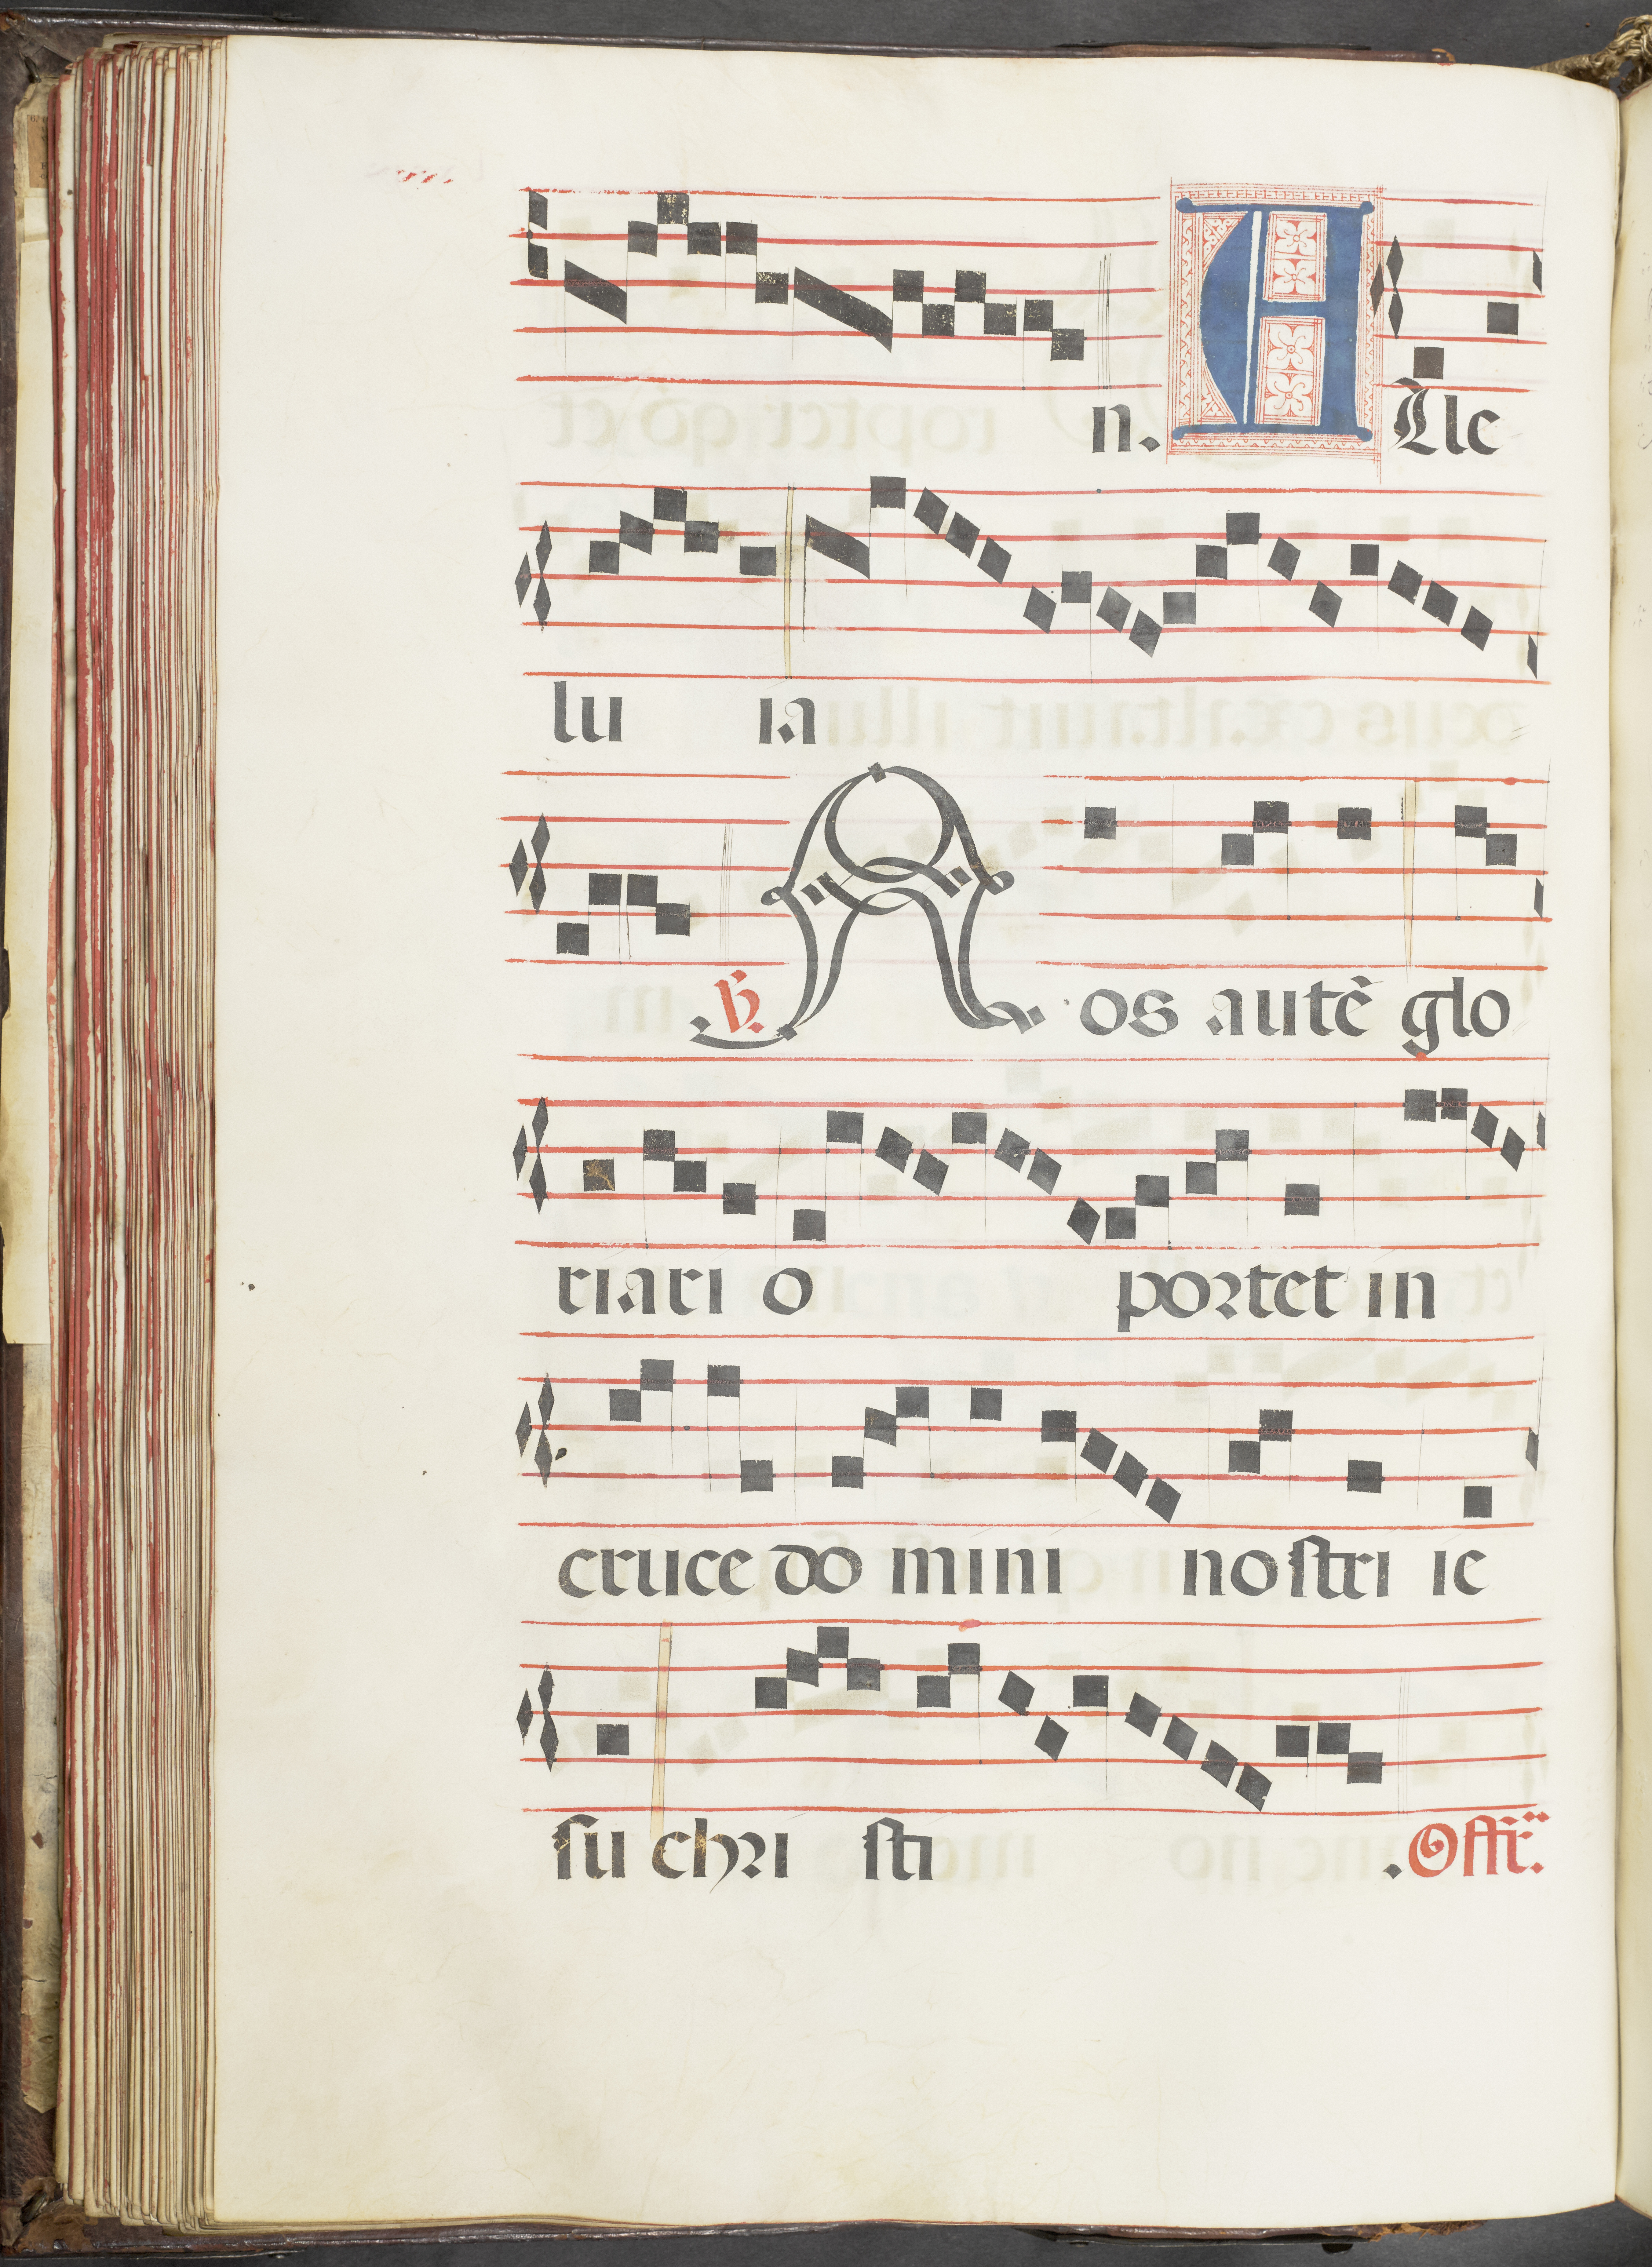 n. A Lle
lu ia
℣. N os autē glo
riari o portet in
cruce do mini nostri ie
su chri sti .Offr̃.